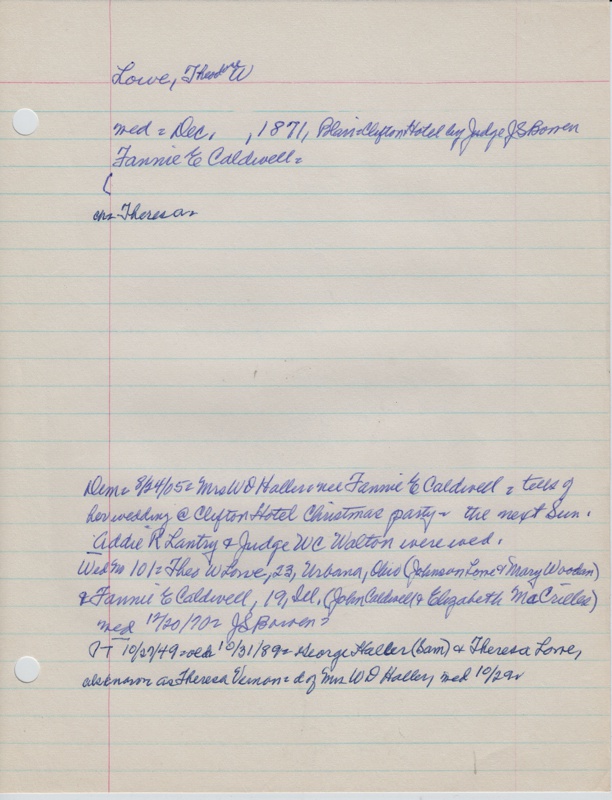 Lowe, Theodore W
wed = Dec. , 1871, Blair = Clifton Hotel by Judge JS Bowen
Fannie E Caldwell =
(
ch = Theresa =
Dem = 8/24/05 = Mrs W D Haller = nee Fannie E Caldwell = tells of
her wedding @ Clifton Hotel Christmas party = the next Sun.
Addie R Lantry & Judge WC Walton were wed.
Wed 101 = Theo W Lowe, 23, Urbana, Ohio (Johnson Lowe & Mary Wooden)
& Fannie E Caldwell, 19, Ill. (John Caldwell & Elizabeth MaCrillis)
wed 12/20/70 = JS Bowen =
PT 10/27/49 = old 10/31/89 = George Haller (Bam) & Theresa Lowe,
also known as Theresa Vernon = d of Mrs W D Haller, wed 10/29 =